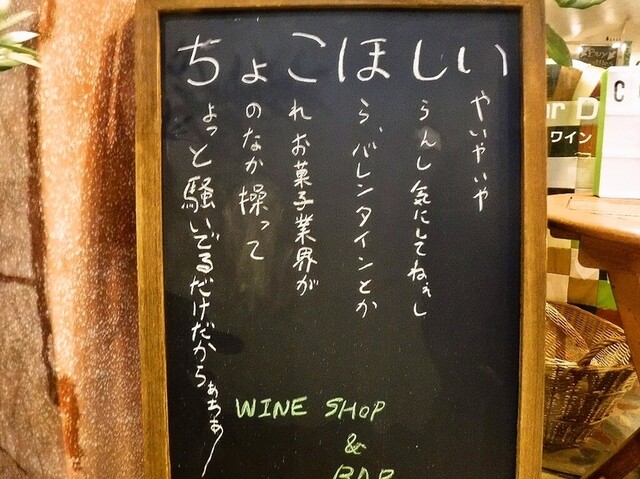 いやいやいや
しらんし気にしてねぇし
ほら、バレンタインとか
これお菓子業界が
ょのなか操って
ちょっと騒いでるだけだからぁぁぁー
WINE SHOP
&
BAR
ワイン